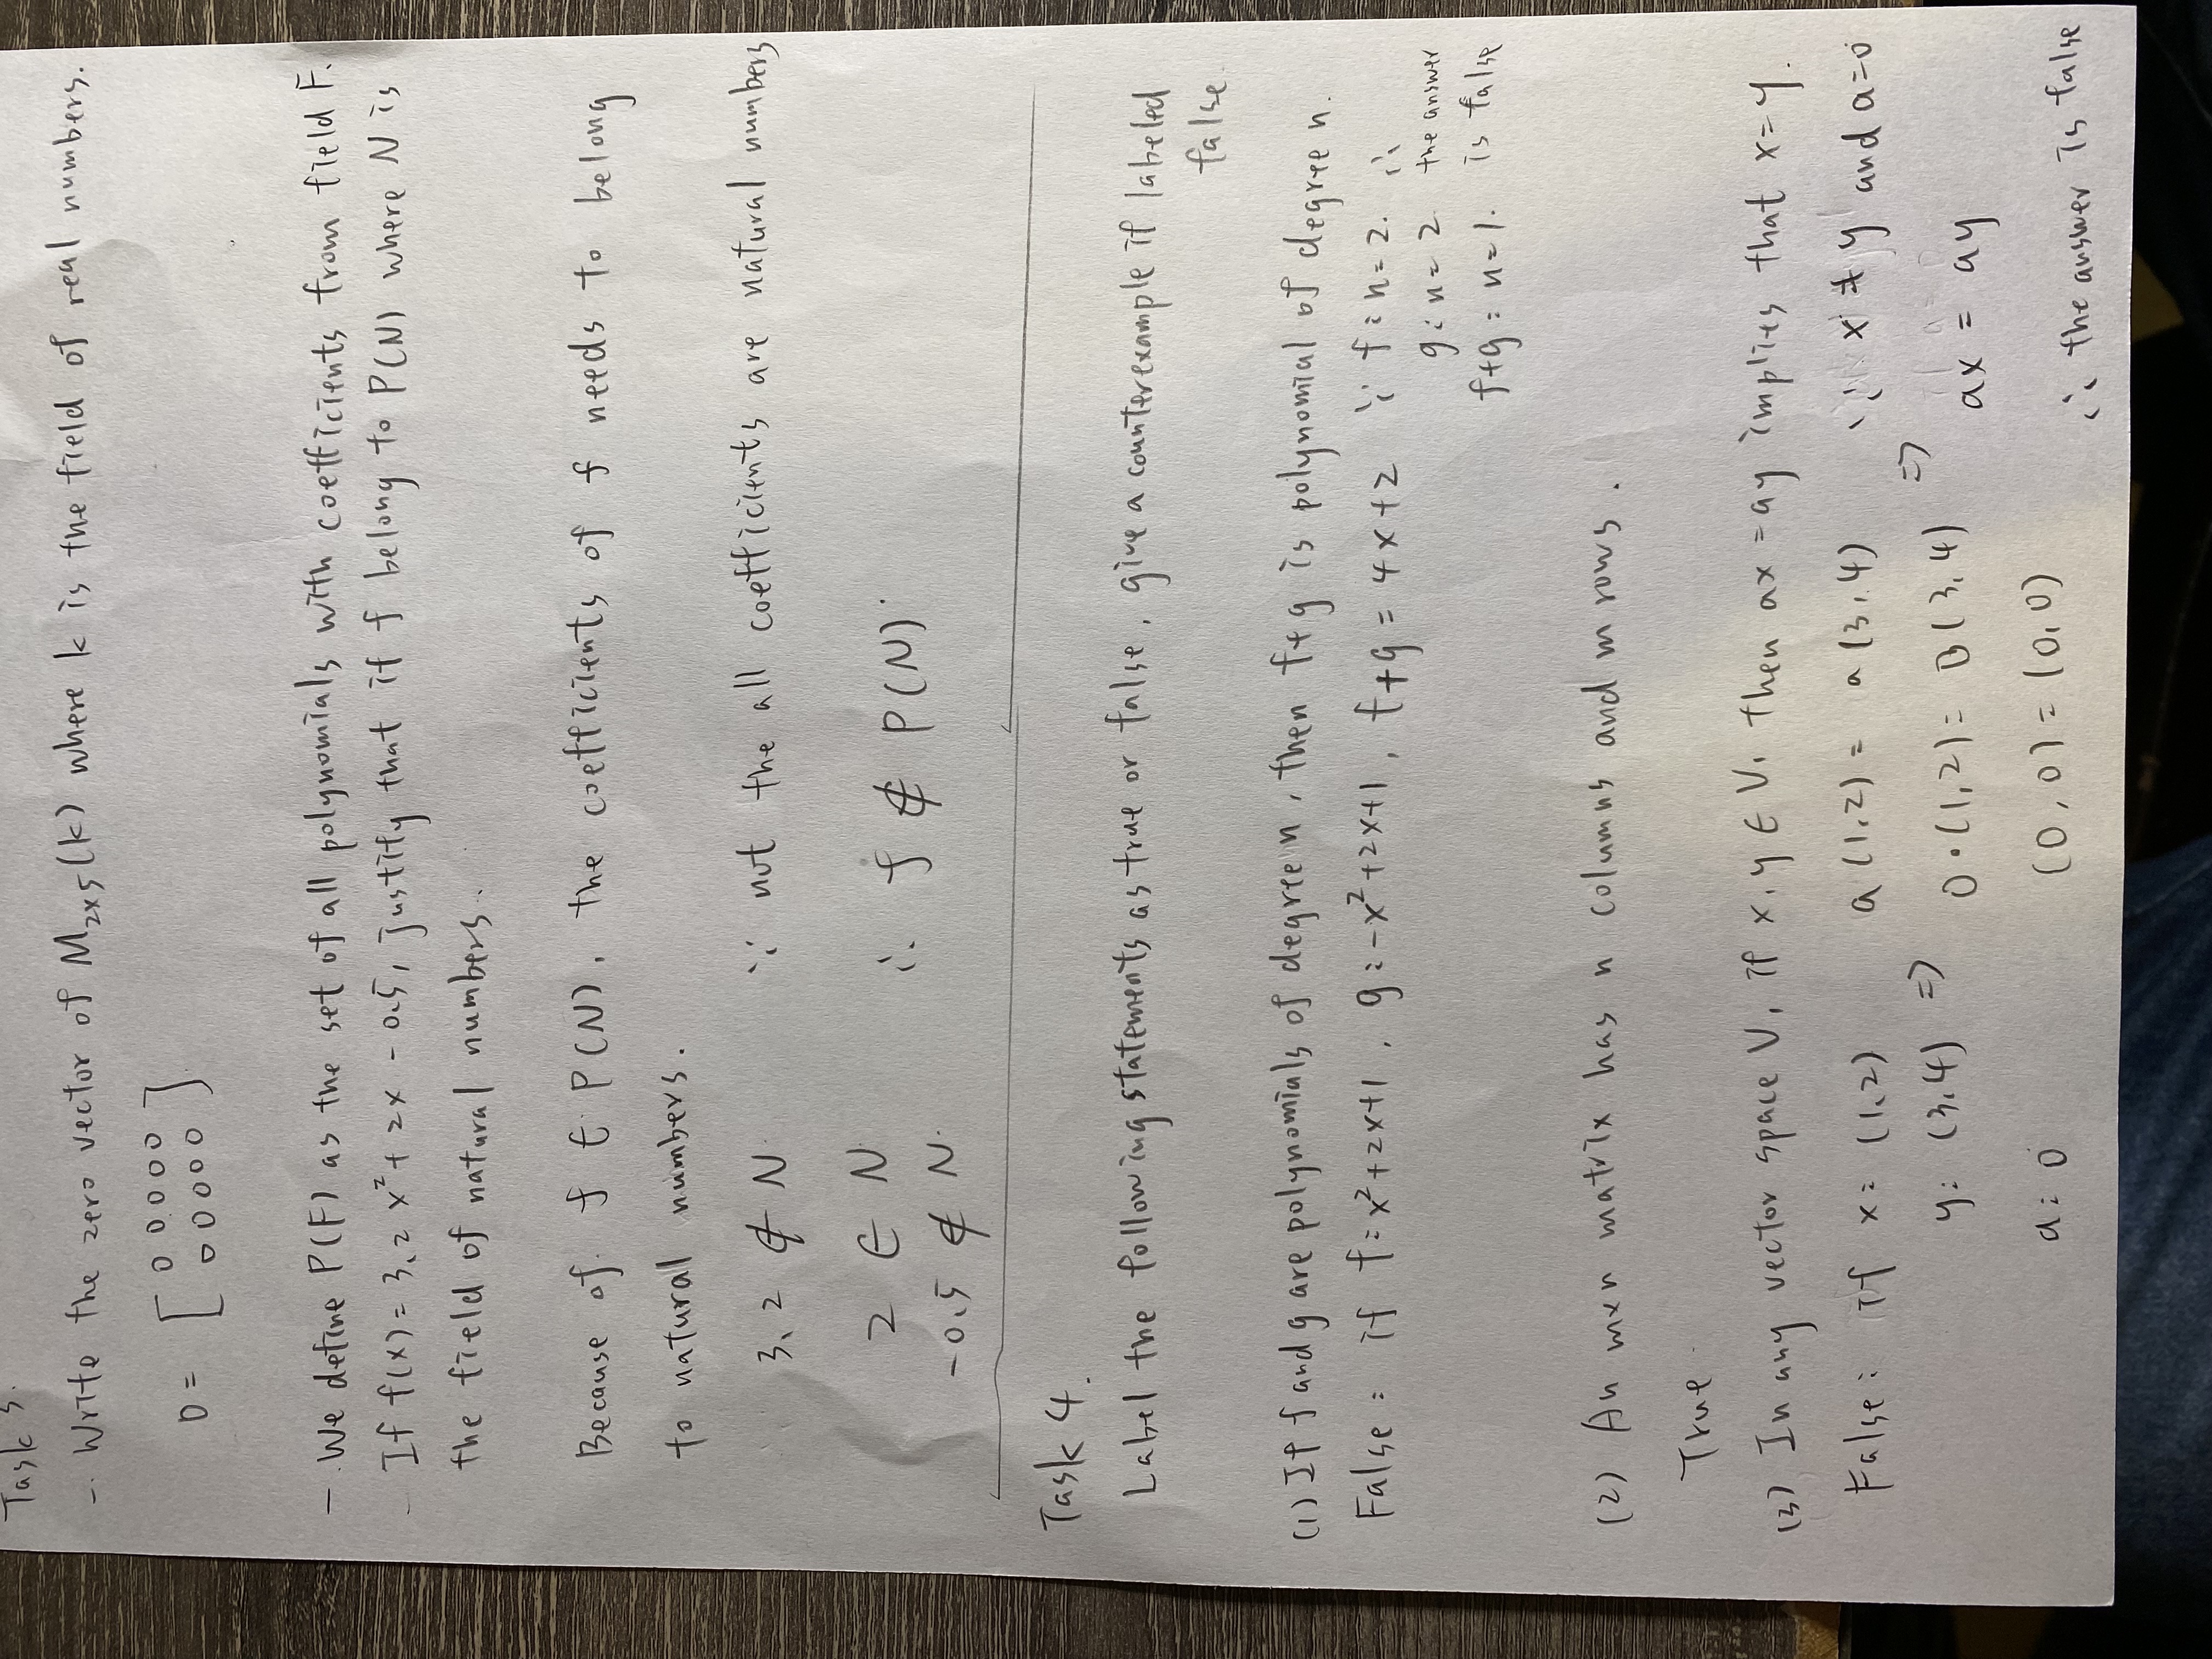 Task 3.
- Write the zero vector of M2x5(k) where k is the field of real numbers.
0 = [ 0 0 0 0 0
0 0 0 0 0 ]
- We define P(F) as the set of all polynomials with coefficients from field F.
- If f(x) = 3.2 x² + 2x - 0.5, justify that if f belong to P(N) where N is
the field of natural numbers.
Because of f ∈ P(N), the coefficients of f needs to belong
to natural numbers.
3.2 ∉ N ∵ not the all coefficients are natural numbers
2 ∈ N ∴ f ∉ P(N)
-0.5 ∉ N.
Task 4.
Label the following statements as true or false, give a counterexample if labeled
false.
(1) If f and g are polynomials of degree n, then f+g is polynomial of degree n.
False: if f: x²+2x+1, g: -x²+2x+1, f+g = 4x+2 ∵ f: n=2. ∴
g: n=2 the answer
f+g: n=1. is false
(2) An mxn matrix has n columns and m rows.
True
(3) In any vector space V, if x, y ∈ V, then ax = ay implies that x=y.
False: if x: (1,2) a(1,2) = a(3,4) ∵ x ≠ y and a=0
y: (3,4) => 0·(1,2) = 0(3,4) =>
ax = ay
a: 0 (0,0) = (0,0)
∴ the answer is false